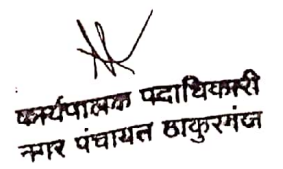 कार्यपालक पदाधिकारी
नगर पंचायत ठाकुरगंज